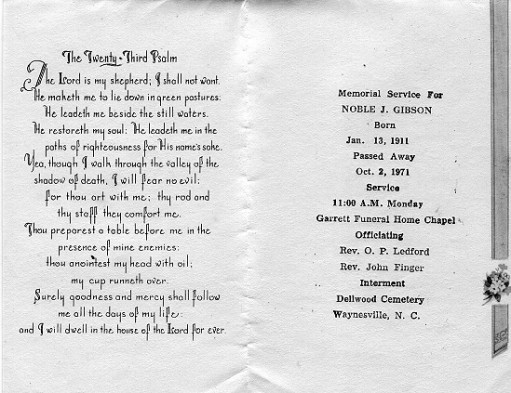 The Twenty-Third Psalm
The Lord is my shepherd; I shall not want.
He maketh me to lie down in green pastures:
He leadeth me beside the still waters.
He restoreth my soul: He leadeth me in the
paths of righteousness for His name's sake.
Yea, though I walk through the valley of the
shadow of death, I will fear no evil:
for thou art with me; thy rod and
thy staff they comfort me.
Thou preparest a table before me in the
presence of mine enemies:
thou anointest my head with oil;
my cup runneth over.
Surely goodness and mercy shall follow
me all the days of my life:
and I will dwell in the house of the Lord for ever.
Memorial Service For
NOBLE J. GIBSON
Born
Jan. 13, 1911
Passed Away
Oct. 2, 1971
Service
11:00 A.M. Monday
Garrett Funeral Home Chapel
Officiating
Rev. O. P. Ledford
Rev. John Finger
Interment
Dellwood Cemetery
Waynesville, N. C.